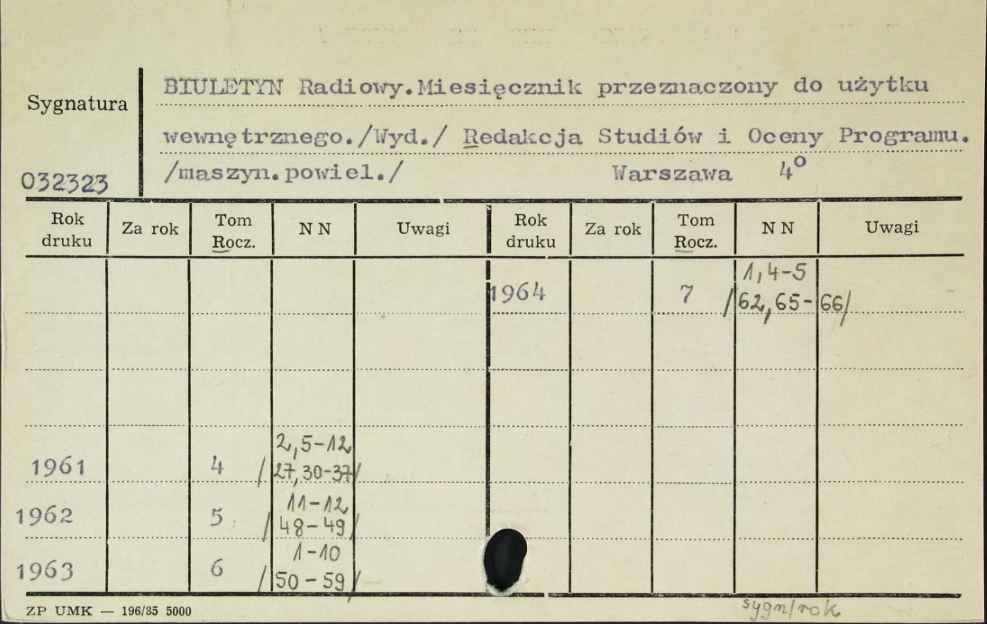 BIULETYN Radiowy.Miesięcznik przeznaczony do użytku
Sygnatura
wewnętrznego./Wyd./ Redakcja Studiów i Oceny Programu.
032323 /maszyn.powiel./ Warszawa 4o
Rok druku Za rok Tom Rocz. NN Uwagi Rok druku Za rok Tom Rocz. NN Uwagi
1964 7 1,4-5
/62,65-66/
1961 4 2,5-12
/27,30-37/
1962 5 11-12
/48-49/
1963 6 1-10
/50-59/
ZP UMK — 196/85 5000
sygn/rok